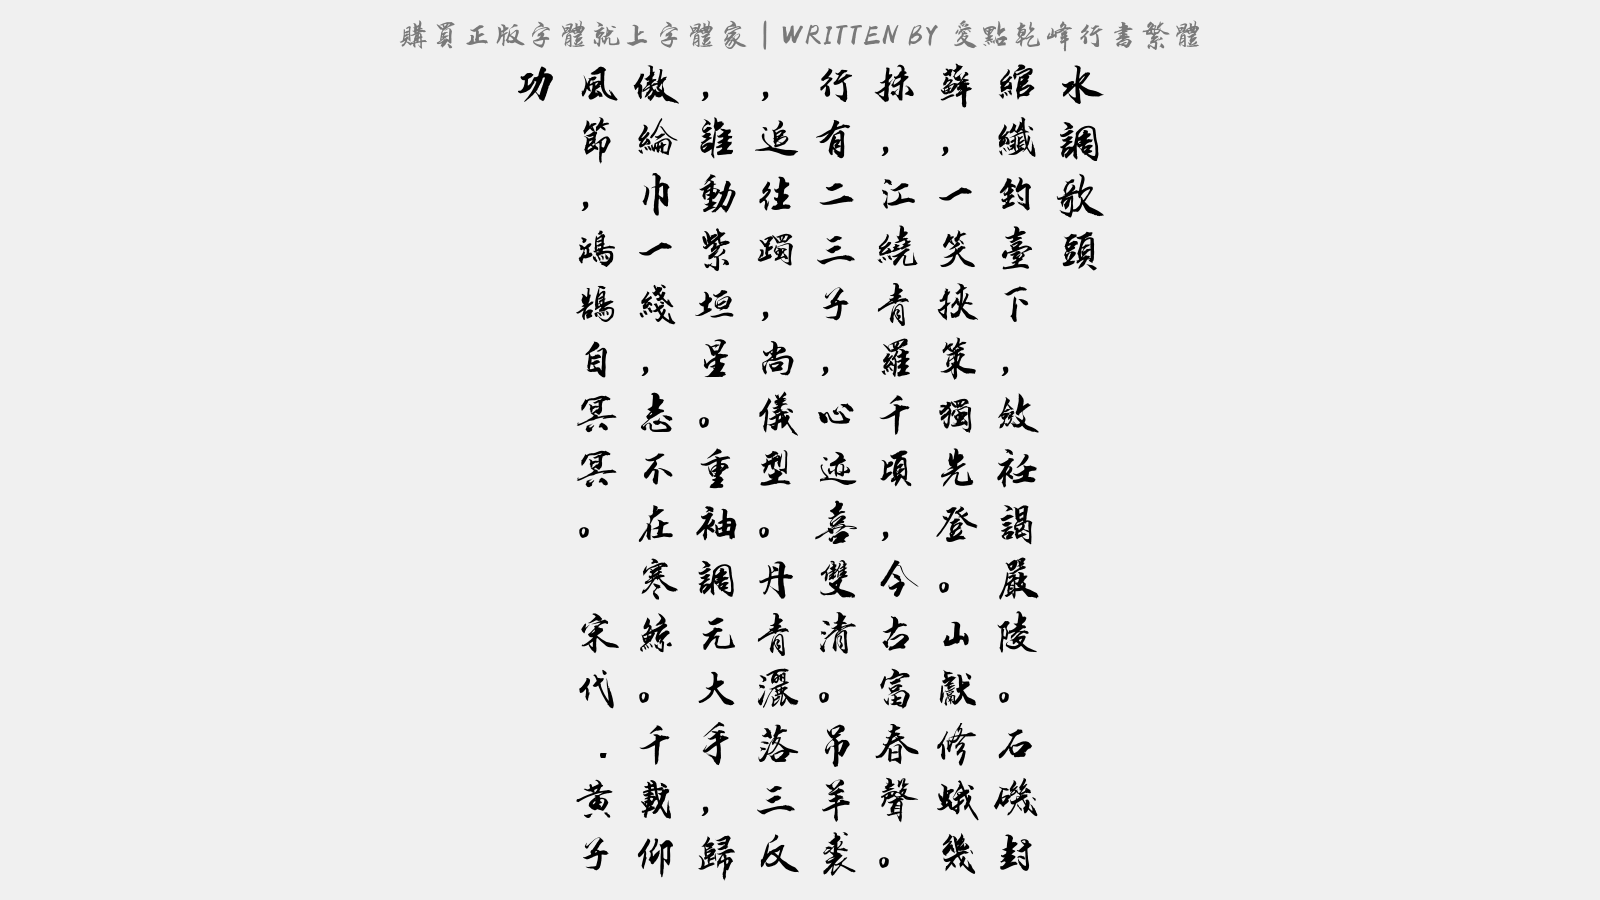 購買正版字體就上字體家 | WRITTEN BY 愛點乾峰行書繁體
水調歌頭
綰纖釣臺下，斂衽謁嚴陵。石磯封
蘚，一笑挾策獨先登。山獻修蛾幾
抹，江繞青羅千頃，今古富春聲。
行有二三子，心迹喜雙清。吊羊裘
，追往躅，尚儀型。丹青灑落三反
，誰動紫垣星。重袖調元大手，歸
傲綸巾一綫，志不在寒鯨。千載仰
風節，鴻鵠自冥冥。　宋代．黃子
功